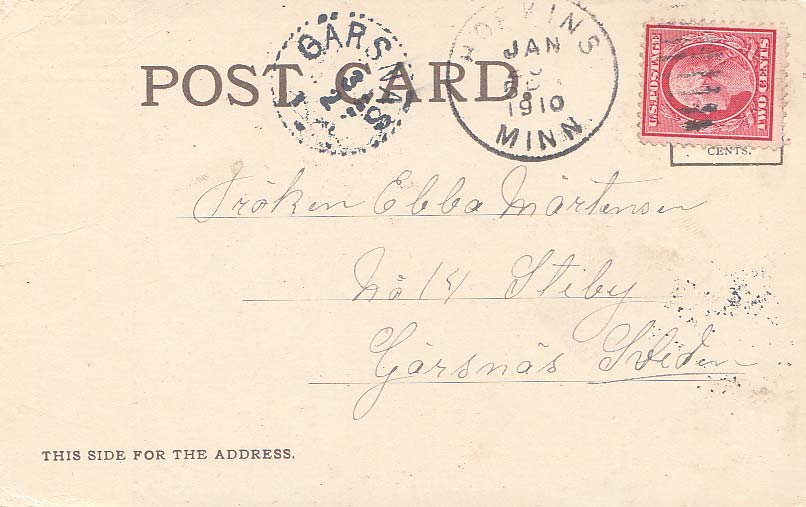 POST CARD.
GÄRSNÄS
HOPKINS
JAN
1910
MINN.
U.S. POSTAGE
TWO CENTS
CENTS.
Fröken Ebba Mårtensen
No 14 Stiby
Gärsnäs Sveden
THIS SIDE FOR THE ADDRESS.